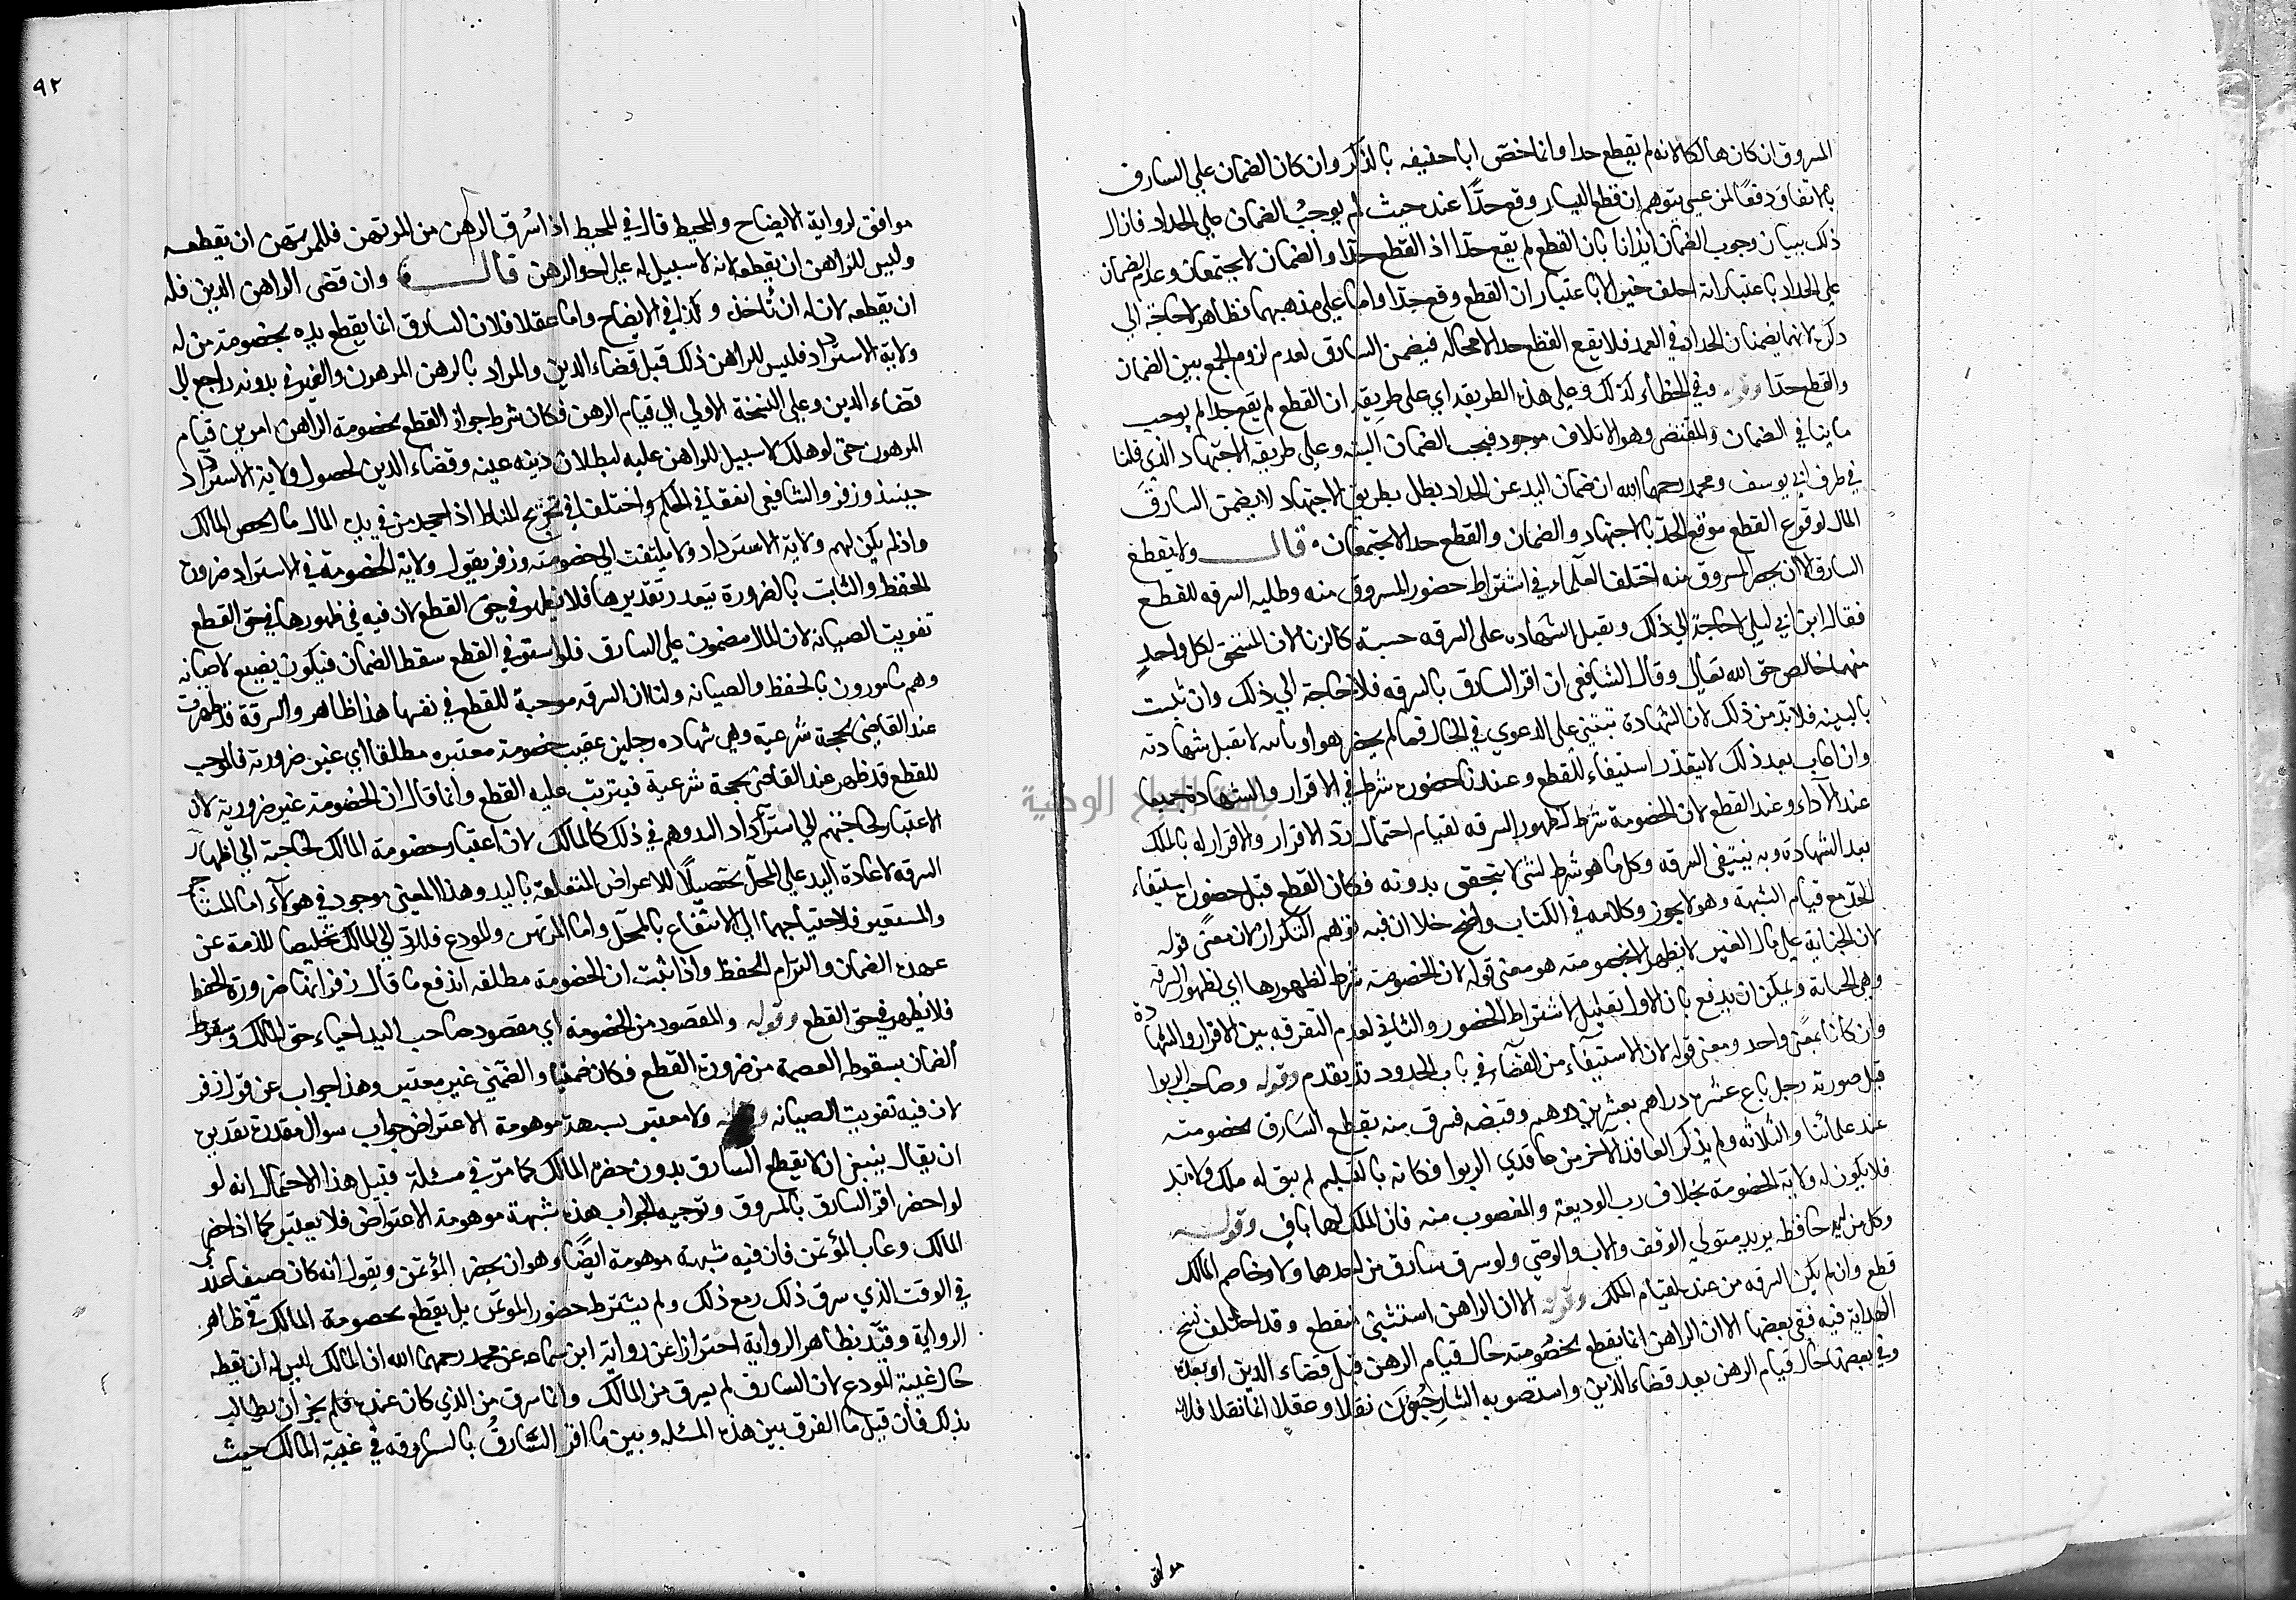 المسروق ان كان هالكا لانه لم يقطع حدا وانما خص ابا حنيفه بالذكر وان كان الضمان على السارق
بالاتفاق دفعا لمن عسى يتوهم ان قطع اليسار وقع حدا عنده حيث لم يوجب الضمان على الحداد فازال
ذلك ببيان وجوب الضمان ايذانا بان القطع لم يقع حدا اذ القطع حدا والضمان لا يجتمعان وعدم الضمان
على الحداد باعتبار انه اخلف خيرا لا باعتبار ان القطع وقع حدا واما على مذهبهما فظاهر لا حاجة الى
ذكره لانهما يضمنان الحداد في العمد فلا يقع القطع حدا لا محاله فيضمن السارق لعدم لزوم الجمع بين الضمان
والقطع حدا وقوله وفي الخطاء كذلك وعلى هذه الطريقه اي على طريقة ان القطع لم يقع حدا لم يوجب
ما ينافي الضمان والمقتضى وهو الاتلاف موجود فيجب الضمان البته وعلى طريقة الاجتهاد الذي قلنا
في طرف ابي يوسف ومحمد رحمهما الله ان ضمان اليد عن الحداد بطل بطريق الاجتهاد لا يضمن السارق
المال لوقوع القطع موقع الحد بالاجتهاد والضمان والقطع حدا لا يجتمعان قال ولا يقطع
السارق الا ان يحضر المسروق منه اختلف العلماء في اشتراط حضور المسروق منه وطلبه السرقه للقطع
فقال ابن ابي ليلى لا حاجة الى ذلك وتقبل الشهاده على السرقه حسبة كالزنا لان المستحق لكل واحد
منهما خالص حق الله تعالى وقال الشافعي ان اقر السارق بالسرقه فلا حاجة الى ذلك وان ثبت
بالبينه فلا بد من ذلك لان الشهادة تبتني على الدعوى في الحال فما لم يحضر هو او نائبه لا تقبل شهادته
وان غاب بعد ذلك لا يتعذر استيفاء القطع وعندنا حضوره شرط في الاقرار والشهادة جميعا
عند الاداء وعند القطع لان الخصومة شرط لظهور السرقه لقيام احتمال رد الاقرار والاقرار له بالملك
بعد الشهادة وبه ينتفي السرقه وكل ما هو شرط لشي لا يتحقق بدونه فكان القطع قبل حضوره استيفاء
الحد مع قيام الشبهة وهو لا يجوز وكلامه في الكتاب واضح خلا ان فيه توهم التكرار لان معنى قوله
لان الجناية على مال الغير لا يظهر الا بخصومته هو معنى قوله لان الخصومة شرط لظهورها اي لظهور السرقه
وهي الجناية ويمكن ان يدفع بان الاول تعليل لاشتراط الحضور والثاني لعدم التفرقه بين الاقرار والشهادة
وان كانا بمعنى واحد ومعنى قوله لان الاستيفاء من القضاء في باب الحدود قد تقدم وقوله وصاحب الربوا
قيل صورته رجل باع عشرة دراهم بعشرين درهم وقبضه فسرق منه يقطع السارق بخصومته
عند علمائنا والثلاثه ولم يذكر العاقد الآخر من عاقدي الربوا فكانه بالتسليم لم يبق له ملك ولا يد
فلا يكون له ولاية الخصومة بخلاف رب الوديعة والمغصوب منه فان الملك لهما باق وقوله
وكل من له يد حافظه يريد متولي الوقف والاب والوصي ولو سرق سارق من احدهما ولا وخاصم المالك
قطع وان لم يكن السرقه من عنده لقيام الملك وقوله الا ان الراهن استثنى يقطع وقد اختلف نسخ
الهداية فيه ففي بعضها الا ان الراهن انما يقطع بخصومته حال قيام الرهن قبل قضاء الدين او بعده
وفي بعضها حال قيام الرهن بعد قضاء الدين واستصوبه الشارحون نقلا وعقلا اما نقلا فلانه
موافق
٩٢
موافق لرواية الايضاح والمحيط قال في المحيط اذا سرق الرهن من المرتهن فللمرتهن ان يقطعه
وليس للراهن ان يقطعه لانه لا سبيل له على اخذ الرهن قال وان قضى الراهن الدين فله
ان يقطعه لان له ان ياخذه وكذا في الايضاح واما عقلا فلان السارق انما يقطع يده بخصومة من له
ولاية الاسترداد فليس للراهن ذلك قبل قضاء الدين والمراد بالرهن المرهون والضمير في بدونه راجع الى
قضاء الدين وعلى النسخة الاولى الى قيام الرهن فكان شرط جواز القطع بخصومة الراهن امرين قيام
المرهون حتى لو هلك لا سبيل للراهن عليه لبطلان دينه عنه وقضاء الدين لحصول ولاية الاسترداد
حينئذ وزفر والشافعي اتفقا في الحكم واختلفا في تخريج المناط اذا جحد من في يده المال ما لم يحضر المالك
واذ لم يكن لهم ولاية الاسترداد ولا يلتفت الى خصومته وزفر يقول ولاية الخصومة في الاسترداد ضرورة
الحفظ والثابت بالضرورة يتقدر بقدرها فلا يظهر في حق القطع لان فيه في ظهورها في حق القطع
تفويت الصيانه لان المال مضمون على السارق فلو استوفى القطع سقط الضمان فيكون تضييع لا صيانه
وهم مامورون بالحفظ والصيانه ولنا ان السرقه موجبة للقطع في نفسها هذا ظاهر والسرقة قد ظهرت
عند القاضي بحجة شرعية وهي شهاده رجلين عقيب خصومة معتبره مطلقا اي غير ضروريه فالموجب
للقطع قد ظهر عند القاضي بحجة شرعية فيترتب عليه القطع وانما قال ان الخصومة غير ضرورية لان
الاعتبار لحاجتهم الى استرداد اليد وهم في ذلك كالمالك لان اعتبار خصومة المالك لحاجته الى اظهار
السرقه لاعادة اليد على المحل تحصيلا للاعراض المتعلقة باليد وهذا المعنى موجود في هولاء اما المستاجر
والمستعير فلاحتياجهما الى الانتفاع بالمحل واما المرتهن والمودع فللرد الى المالك تخليصا للذمة عن
عهدة الضمان والتزام الحفظ واذا ثبت ان الخصومة مطلقه اندفع ما قال زفر انها ضرورة الحفظ
فلا يظهر في حق القطع وقوله والمقصود من الخصومة اي مقصود صاحب اليد احياء حق المالك وسقوط
الضمان بسقوط العصمة من ضرورة القطع فكان ضمنيا والضمني غير معتبر وهذا جواب عن قول زفر
لان فيه تفويت الصيانه ولا معتبر بشبهة موهومة الاعتراض جواب سوال مقدر تقديره
ان يقال ينبغي ان لا يقطع السارق بدون حضرة المالك كما مر في مسئلة قبيل هذا الاحتمال انه لو
لو احضر اقر السارق بالمسروق وتوجيه الجواب هذه شبهة موهومة الاعتراض فلا يعتبر كما اذا حضر
المالك وغاب المؤتمن فان فيه شبهة موهومة ايضا وهو ان يحضر المؤتمن ويقول انه كان ضيفا عندي
في الوقت الذي سرق ذلك ومع ذلك ولم يشترط حضور المؤتمن بل يقطع بخصومة المالك في ظاهر
الرواية وقيد بظاهر الرواية احترازا عن رواية ابن سماعه عن محمد رحمهما الله ان المالك ليس له ان يقطه
حال غيبة المودع لان السارق لم يسرق من المالك وانما سرق من الذي كان عنده فلم يجز ان يطالب
بذلك فان قيل ما الفرق بين هذه المسئله وبين ما اقر السارق بالسرقه في غيبة المالك حيث
جامعة النجاح الوطنية